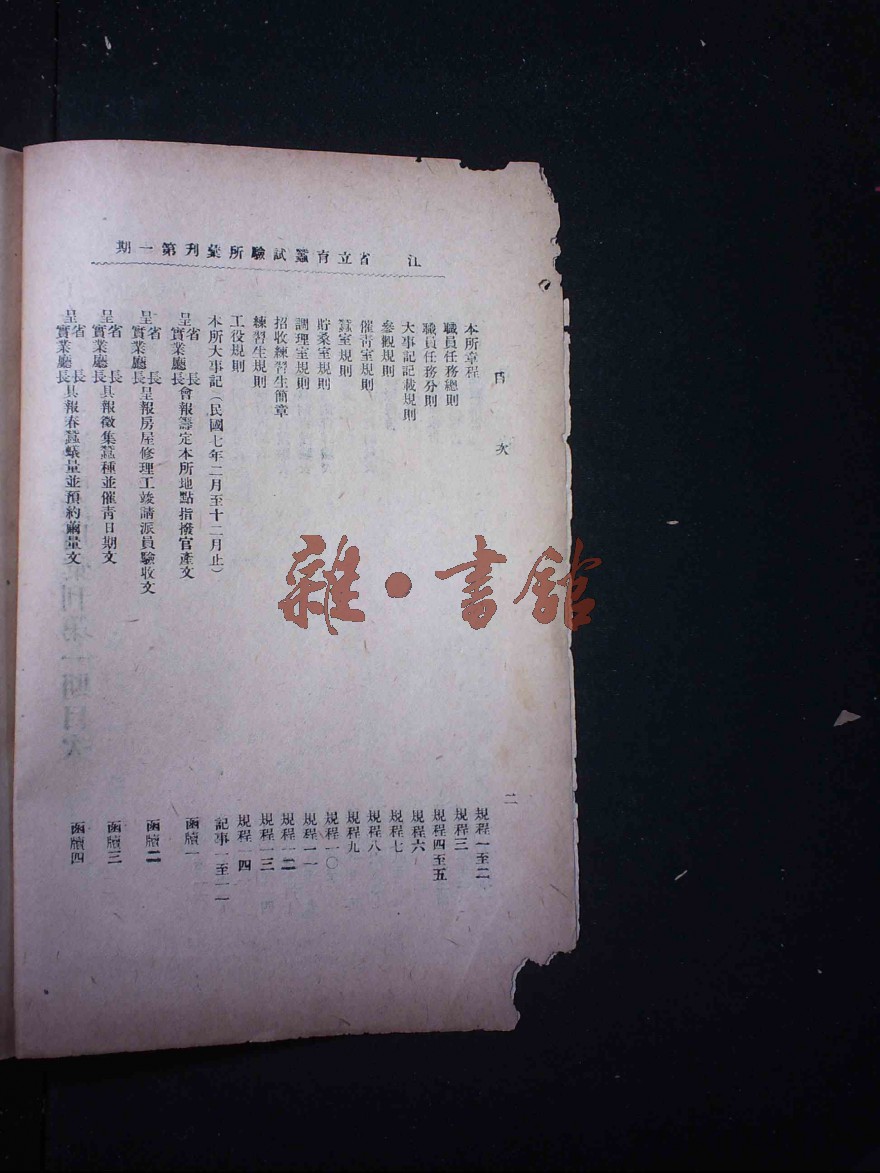 江 省立育蠶試驗所彙刊第一期
目次 二
本所章程 規程一至二
職員任務總則 規程三
職員任務分則 規程四至五
大事記記載規則 規程六
參觀規則 規程七
催青室規則 規程八
蠶室規則 規程九
貯桑室規則 規程一〇
調理室規則 規程一一
招收練習生簡章 規程一二
練習生規則 規程一三
工役規則 規程一四
本所大事記(民國七年二月至十二月止) 記事一至一一
呈省長實業廳長會報籌定本所地點指撥官產文 函牘一
呈省長實業廳長呈報房屋修理工竣請派員驗收文 函牘二
呈省長實業廳長具報徵集蠶種並催青日期文 函牘三
呈省長實業廳長具報春蠶蟻量並預約繭量文 函牘四
雜·書館